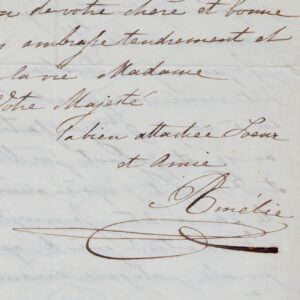 de votre chère et bonne
ambrasse tendrement et
la vie Madame
Votre Majesté
la bien attachée Soeur
et Amie
Amélie